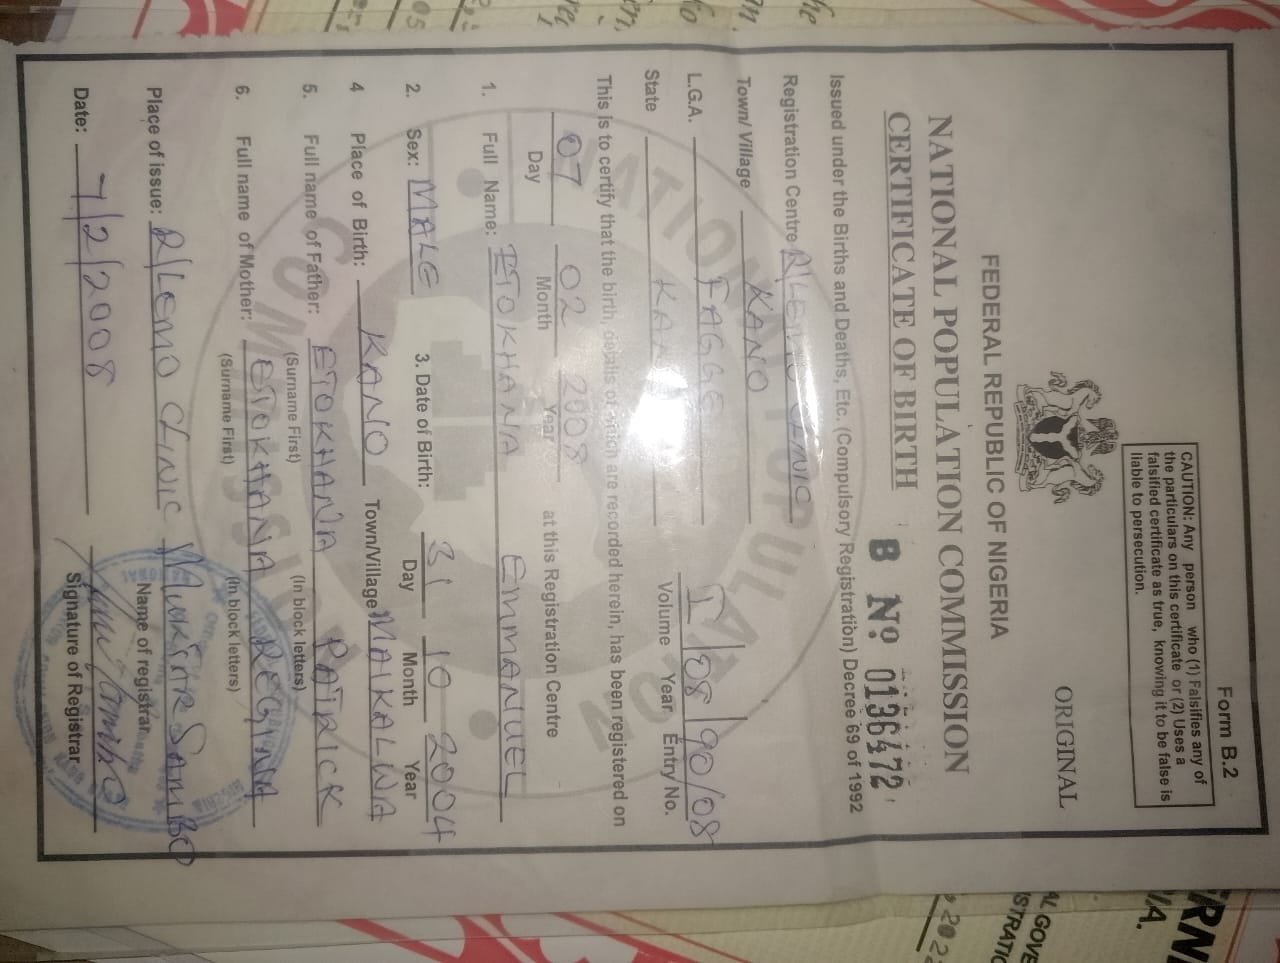 Form B.2
ORIGINAL
CAUTION: Any person who (1) Falsifies any of
the particulars on this certificate or (2) Uses a
falsified certificate as true, knowing it to be false is
liable to persecution.
FEDERAL REPUBLIC OF NIGERIA
NATIONAL POPULATION COMMISSION
CERTIFICATE OF BIRTH
B No 0136472
Issued under the Births and Deaths, Etc. (Compulsory Registration) Decree 69 of 1992
Registration Centre R/LEMO CLINIC
Town/ Village KANO
L.G.A. FAGGE I/08/90/08
State KANO Volume Year Entry No.
This is to certify that the birth, details of which are recorded herein, has been registered on
07 02 2008 at this Registration Centre
Day Month Year
1. Full Name: ETOKHANA EMMANUEL
2. Sex: MALE 3. Date of Birth: 31 10 2004
Day Month Year
4 Place of Birth: KANO Town/Village MAIKALWA
5. Full name of Father: ETOKHANA PATRICK
(Surname First) (In block letters)
6. Full name of Mother: ETOKHANA REGINA
(Surname First) (In block letters)
Place of issue: R/LEMO CLINIC MUKHTAR SAMBO
Name of registrar
Date: 7/2/2008
Signature of Registrar
NATIONAL POPULATION COMMISSION